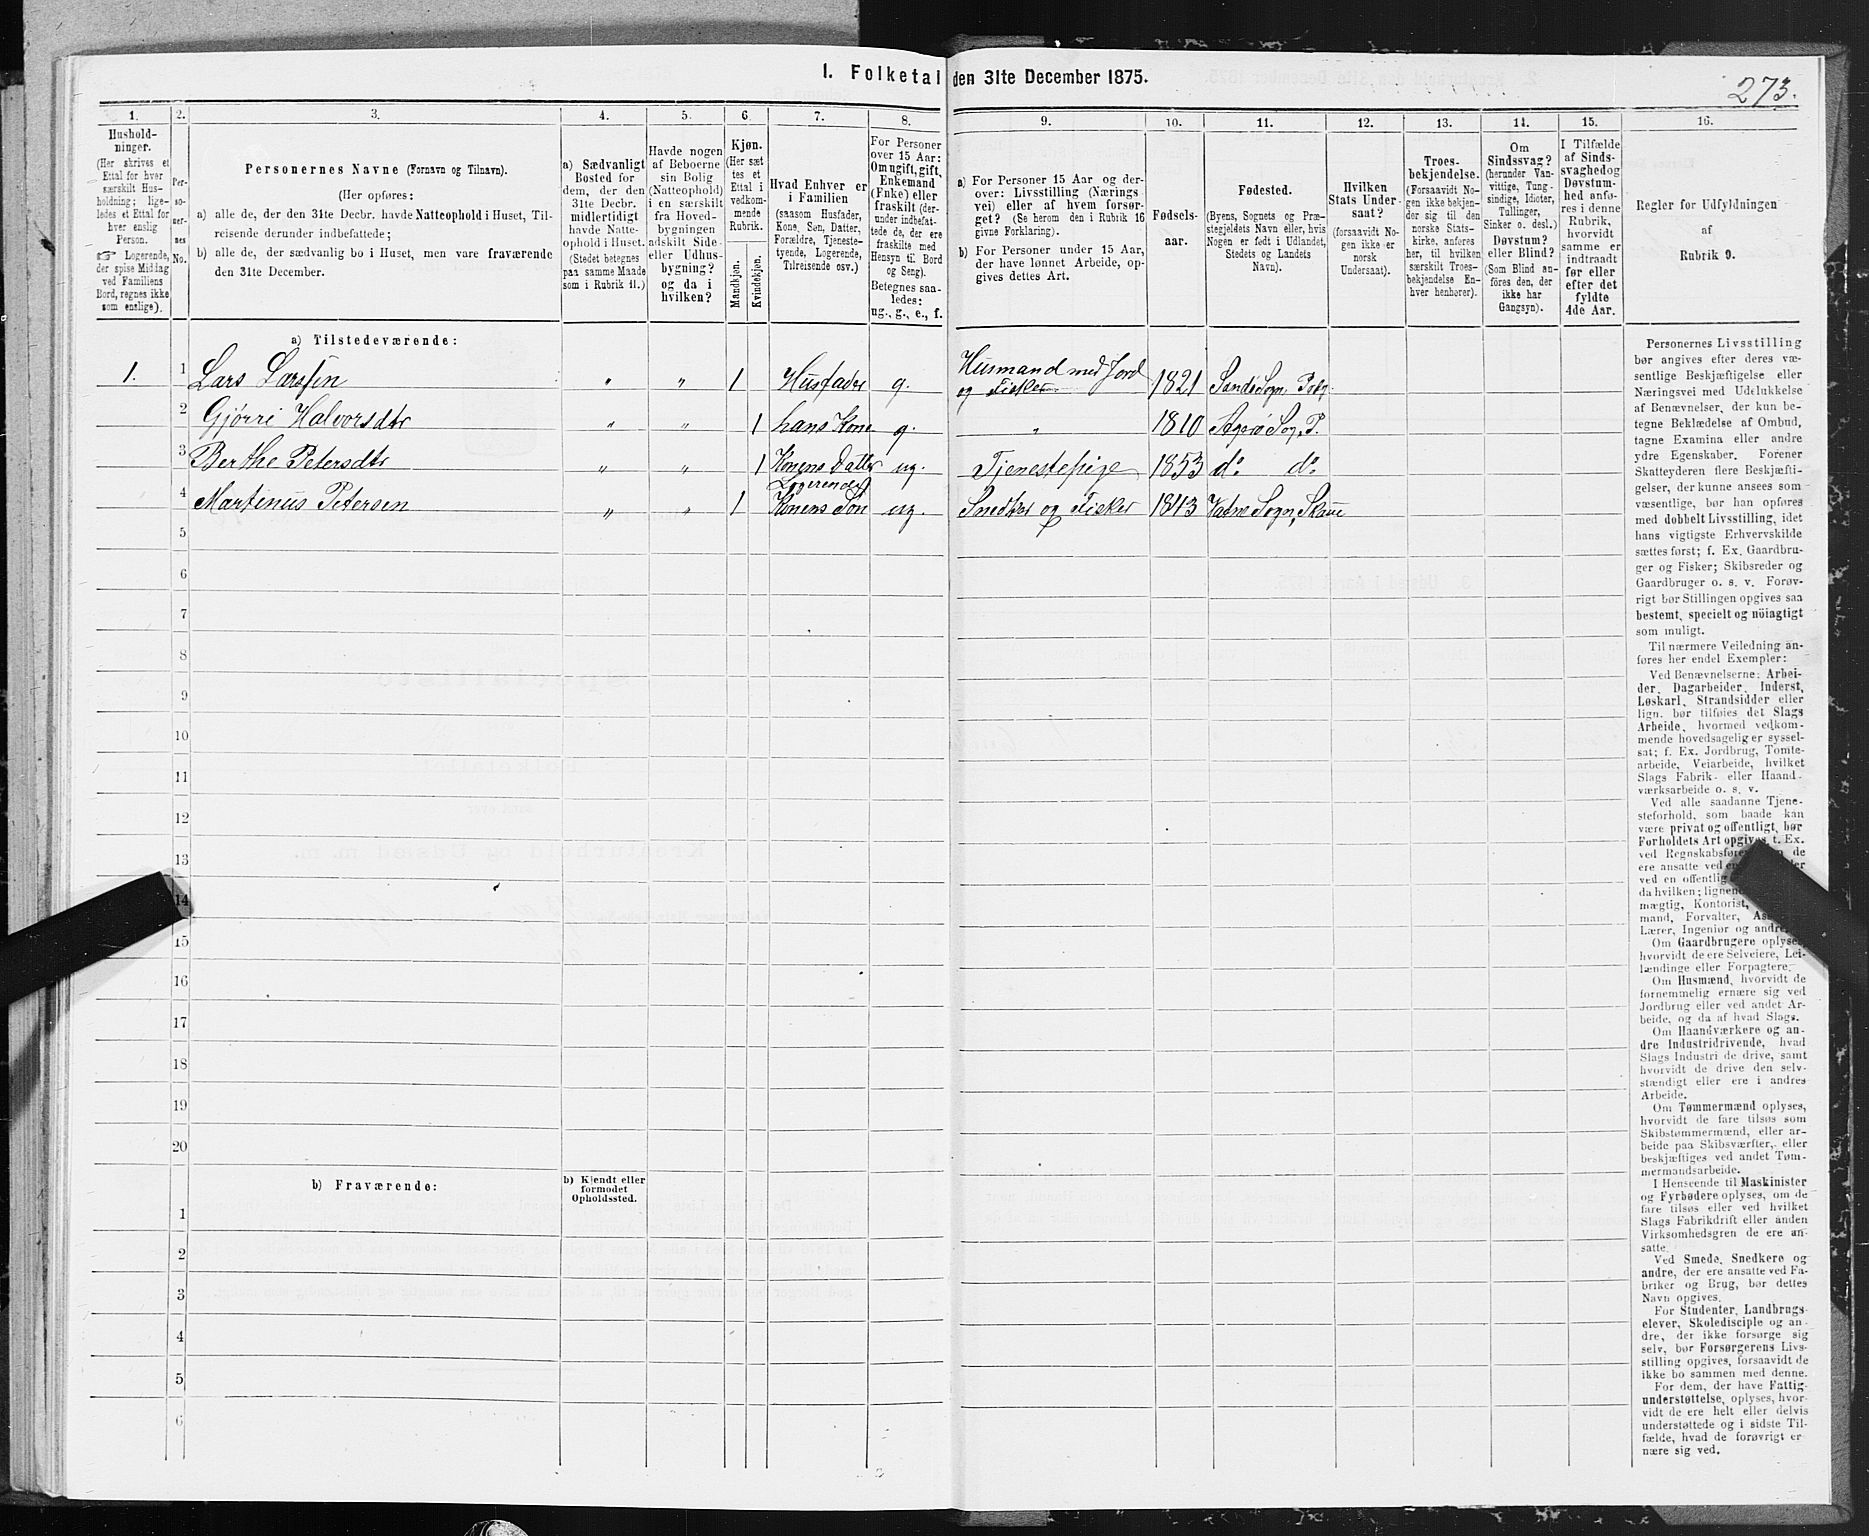 1. Folketal den 31te December 1875.
273.
1.
Hushold-
ninger.
(Her skrives et
Ettal for hver
særskilt Hus-
holdning; lige-
ledes et Ettal for
hver enslig
Person.
☞ Logerende,
der spise Middag
ved Familiens
Bord, regnes ikke
som enslige).
2.
Per-
so-
ner-
nes
No.
3.
Personernes Navne (Fornavn og Tilnavn).
(Her opføres:
a) alle de, der den 31te Decbr. havde Natteophold i Huset, Til-
reisende derunder indbefattede;
b) alle de, der sædvanlig bo i Huset, men vare fraværende
den 31te December.
4.
a) Sædvanligt
Bosted for
dem, der den
31te Decbr.
midlertidigt
havde Natte-
ophold i Huset.
(Stedet betegnes
paa samme Maade
som i Rubrik 11.)
5.
Havde nogen
af Beboerne
sin Bolig
(Natteophold)
i en særskilt
fra Hoved-
bygningen
adskilt Side-
eller Udhus-
bygning?
og da i
hvilken?
6.
Kjøn.
(Her sæt
tes et
Ettal i
vedkom-
mende
Rubrik.
Mandkjøn.
Kvindekjøn.
7.
Hvad Enhver er
i Familien
(saasom Husfader,
Kone, Søn, Datter,
Forældre, Tjeneste-
tyende, Logerende,
Tilreisende osv.)
8.
For Personer
over 15 Aar:
Om ugift, gift,
Enkemand
(Enke) eller
fraskilt (der-
under indbefat-
tede de, der ere
fraskilte med
Hensyn til Bord
og Seng).
Betegnes saa-
ledes:
ug., g., e., f.
9.
a) For Personer 15 Aar og der-
over: Livsstilling (Nærings-
vei) eller af hvem forsør-
get? (Se herom den i Rubrik 16
givne Forklaring).
b) For Personer under 15 Aar,
der have lønnet Arbeide, op-
gives dettes Art.
10.
Fødsels-
aar.
11.
Fødested.
(Byens, Sognets og Præ-
stegjeldets Navn eller, hvis
Nogen er født i Udlandet,
Stedets og Landets
Navn).
12.
Hvilken
Stats Under-
saat?
(forsaavidt No-
gen ikke er
norsk
Undersaat).
13.
Troes-
bekjendelse.
(Forsaavidt No-
gen ikke bekjen-
der sig til den
norske Stats-
kirke, anføres
her, til hvilken
særskilt Troes-
bekjendelse En-
hver henhører).
14.
Om
Sindssvag?
(herunder Van-
vittige, Tung-
sindige, Idioter,
Tullinger,
Sinker o. desl.)
Døvstum?
eller Blind?
(Som Blind an-
føres den, der
ikke har
Gangsyn).
15.
I Tilfælde
af Sinds-
svaghed og
Døvstum-
hed anfø-
res i denne
Rubrik,
hvorvidt
samme er
indtraadt
før eller
efter det
fyldte
4de Aar.
16.
Regler for Udfyldningen
af
Rubrik 9.
a) Tilstedeværende:
1. 1 Lars Larssen " " 1 Husfader g. Husmand med Jord
og Fisker 1821 Sandø Sogn,
2 Gjørri Halvorsdtr " " 1 hans Kone g. " 1810 Agerø Sogn, P.
3 Berthe Petersdtr " " 1 Konens Datter ug. Tjenestepige 1853 do do
Logerende
4 Martinus Petersen " " 1 Konens Søn ug. Snedker og Fisker 1843 Vatne Sogn,
5
6
7
8
9
10
11
12
13
14
15
16
17
18
19
20
b) Fraværende:
b) Kjendt eller
formodet
Opholdssted.
1
2
3
4
5
6
Personernes Livsstilling
bør angives efter deres væ-
sentlige Beskjæftigelse eller
Næringsvei med Udelukkelse
af Benævnelser, der kun be-
tegne Beklædelse af Ombud,
tagne Examina eller andre
ydre Egenskaber. Forener
Skatteyderen flere Beskjæfti-
gelser, der kunne ansees som
væsentlige, bør han opføres
med dobbelt Livsstilling, idet
hans vigtigste Erhvervskilde
sættes først; f. Ex. Gaardbru-
ger og Fisker; Skibsreder og
Gaardbruger o. s. v. Forøv-
rigt bør Stillingen opgives saa
bestemt, specielt og nöiagtigt
som muligt.
Til nærmere Veiledning an-
føres her endel Exempler:
Ved Benævnelserne: Arbei-
der, Dagarbeider, Inderst,
Løskarl, Strandsidder eller
lign. bør tilføies det Slags
Arbeide, hvormed vedkom-
mende hovedsagelig er syssel-
sat; f. Ex. Jordbrug, Tomte-
arbeide, Veiarbeide, hvilket
Slags Fabrik- eller Haand-
værksarbeide o. s. v.
Ved alle saadanne Tjene-
steforhold, som baade kan
være privat og offentligt, bør
Forholdets Art opgives, t. Ex.
ved Regnskabsføre de
ere ansatte ved
ved en offentlig
da hvilken; lignen
mægtig, Kontorist,
mand, Forvalter,
Lærer, Ingeniør og andre.
Om Gaardbrugere oplyses,
hvorvidt de ere Selveiere, Lei-
lændinge eller Forpagtere.
Om Husmænd, hvorvidt de
fornemmelig ernære sig ved
Jordbrug eller ved andet Ar-
beide, og da af hvad Slags.
Om Haandværkere og an-
dre Industridrivende, hvad
Slags Industri de drive, samt
hvorvidt de drive den selv-
stændigt eller ere i andres
Arbeide.
Om Tømmermænd oplyses,
hvorvidt de fare tilsøs som
Skibstømmermænd, eller ar-
beide paa Skibsværfter, eller
beskjæftiges ved andet Tøm-
mermandsarbeide.
I Henseende til Maskinister
og Fyrbødere oplyses, om de
fare tilsøs eller ved hvilket
Slags Fabrikdrift eller anden
Virksomhedsgren de ere an-
satte.
Ved Smede, Snedkere og
andre, der ere ansatte ved Fa-
briker og Brug, bør dettes
Navn opgives.
For Studenter, Landbrugs-
elever, Skoledisciple og an-
dre, der ikke forsørge sig
selv, bør Forsørgerens Livs-
stilling opgives, forsaavidt de
ikke bo sammen med denne.
For dem, der have Fattig-
understøttelse, oplyses, hvor-
vidt de ere helt eller delvis
understøttede og i sidste Til-
fælde, hvad de forøvrigt er-
nære sig ved.